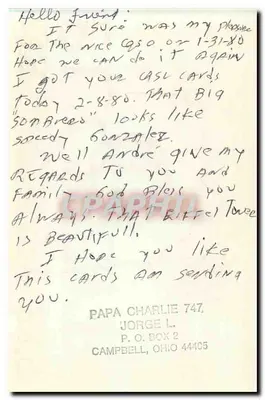 Hello Friend:
It sure was my pleasure
For The Nice QSO on 1-31-80
Hope we can do it Again
I got your QSL CARDS
Today 2-8-80. That Big
"Sombrero" looks like
speedy Gonzalez.
Well André give my
Regards To you And
Family God Bless you
Always. That Eiffel Tower
is Beautifull.
I Hope you like
This cards Am sending
you.
PAPA CHARLIE 747,
JORGE L.
P. O. BOX 2
CAMPBELL, OHIO 44405